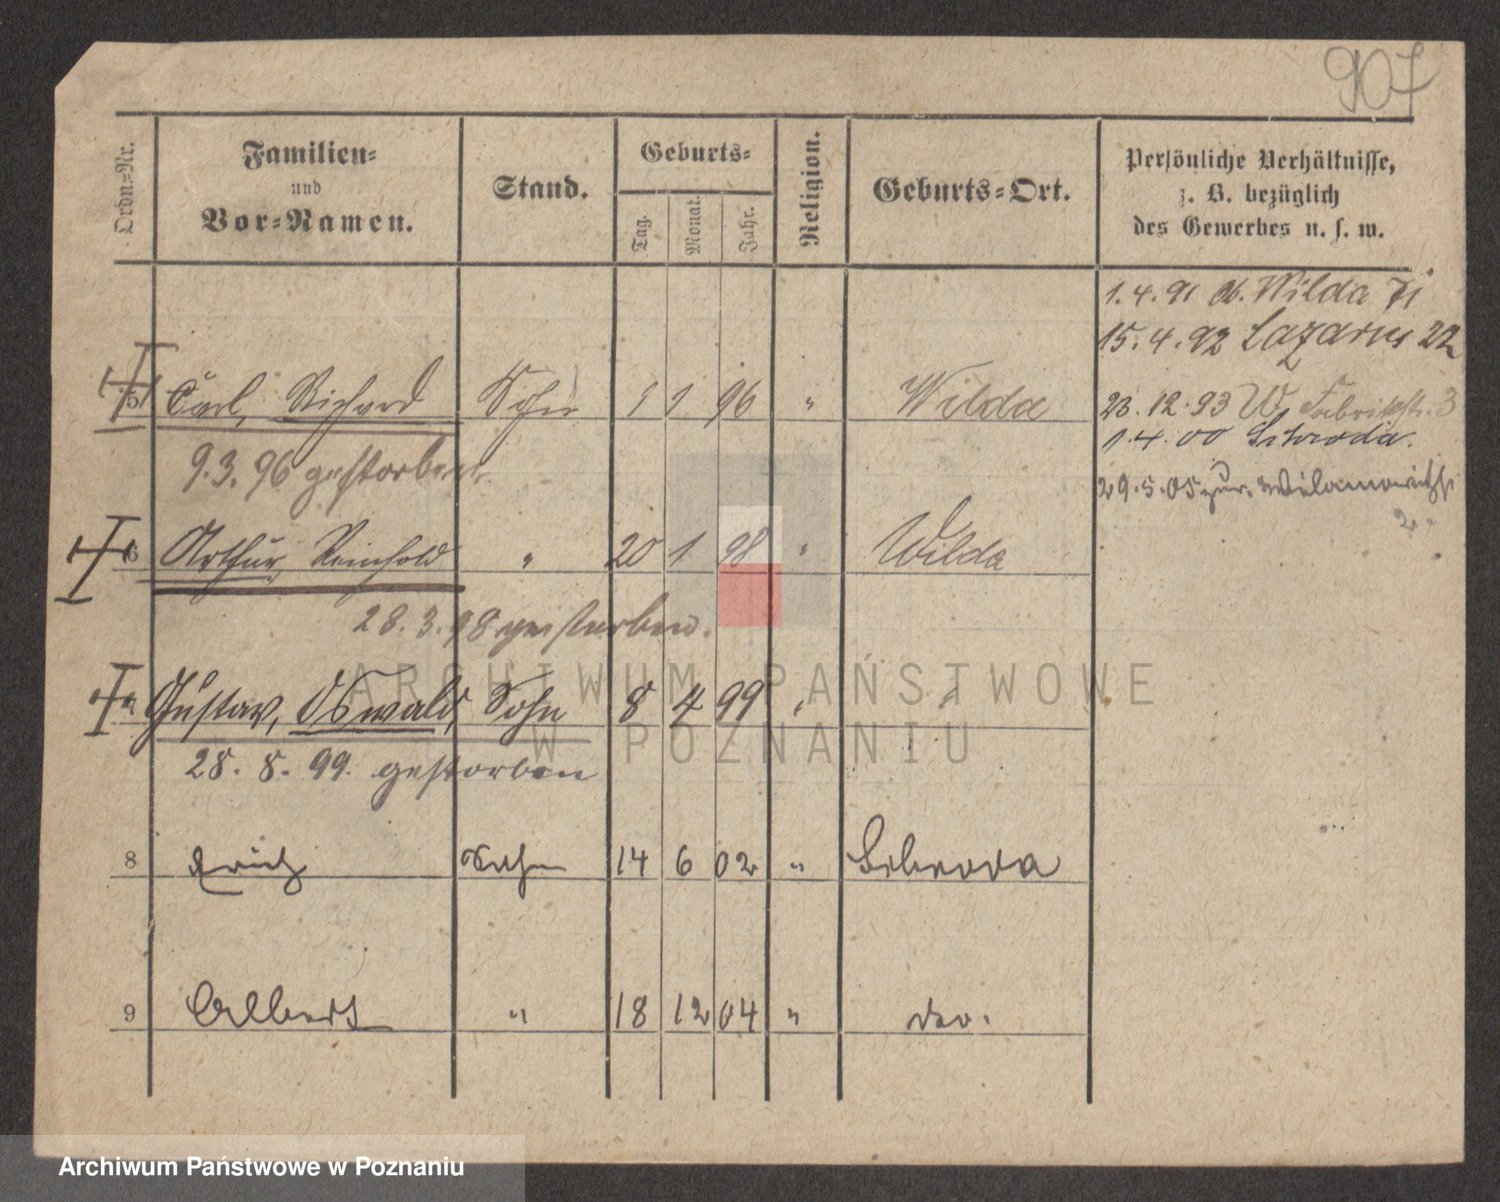 907
Ordn.-Nr.
Familien-
und
Vor-Namen.
Stand.
Geburts-
Tag.
Monat.
Jahr.
Religion.
Geburts-Ort.
Persönliche Verhältnisse,
z. B. bezüglich
des Gewerbes u. s. w.
1.4.91 Wilda 71
15.4.92 Lazarus 22
5 Carl, Richard Sohn 1 1 96 " Wilda
23.12.93 W Fabrikstr. 3
1.4.00 Schroda.
9.3.96 gestorben.
29.5.05 zur.
2.
6 Arthur, Reinhold " 20 1 98 " Wilda
28.3.98 gestorben.
7 Gustav, Oswald, Sohn 8 4 99 " "
28.8.99. gestorben
8 Erich Sohn 14 6 02 " Schroda
9 Albert " 18 12 04 " do.
ARCHIWUM PAŃSTWOWE
W POZNANIU
Archiwum Państwowe w Poznaniu